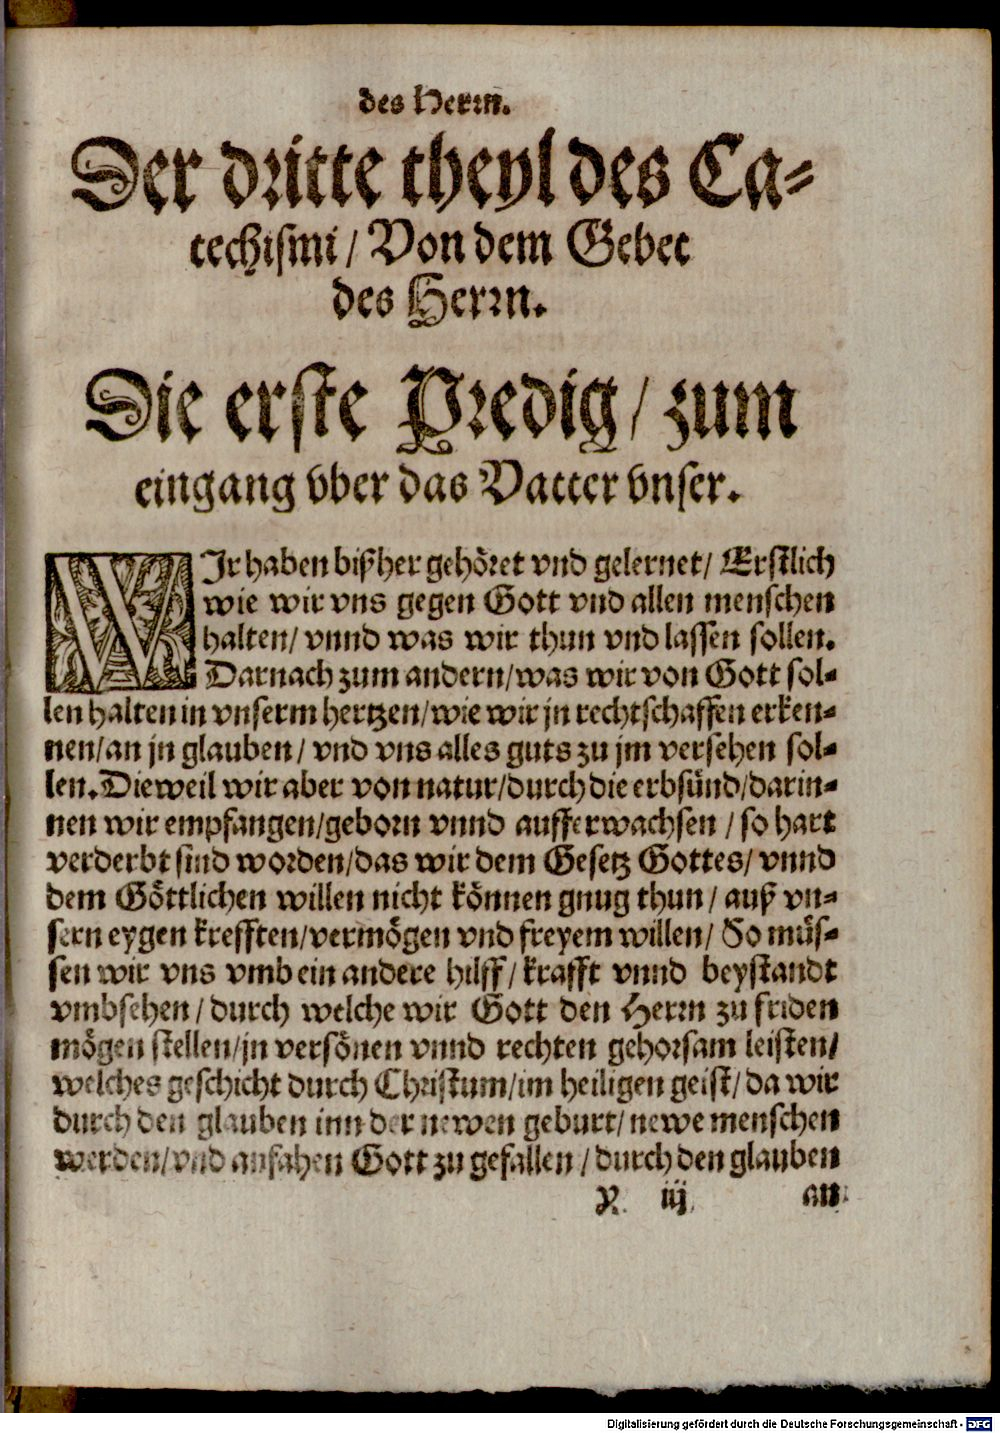 des Herrn.
Der dritte theyl des Ca-
techismi / Von dem Gebet
des Herrn.
Die erste Predig / zum
eingang vber das Vatter vnser.
WIr haben bißher gehöret vnd gelernet/ Erstlich
wie wir vns gegen Gott vnd allen menschen
halten/ vnnd was wir thun vnd lassen sollen.
Darnach zum andern/was wir von Gott sol-
len halten in vnserm hertzen/wie wir jn rechtschaffen erken-
nen/an jn glauben/ vnd vns alles guts zu jm versehen sol-
len. Dieweil wir aber von natur/durch die erbsünd/darin-
nen wir empfangen/geborn vnnd aufferwachsen / so hart
verderbt sind worden/das wir dem Gesetz Gottes/ vnnd
dem Göttlichen willen nicht können gnug thun/ auß vn-
sern eygen krefften/vermögen vnd freyem willen/ So müs-
sen wir vns vmb ein andere hilff/ krafft vnnd beystandt
vmbsehen/ durch welche wir Gott den Herrn zu friden
mögen stellen/jn versönen vnnd rechten gehorsam leisten/
welches geschicht durch Christum/im heiligen geist/ da wir
durch den glauben inn der newen geburt/ newe menschen
werden/vnd anfahen Gott zu gefallen / durch den glauben
Y iij an
Digitalisierung gefördert durch die Deutsche Forschungsgemeinschaft - DFG